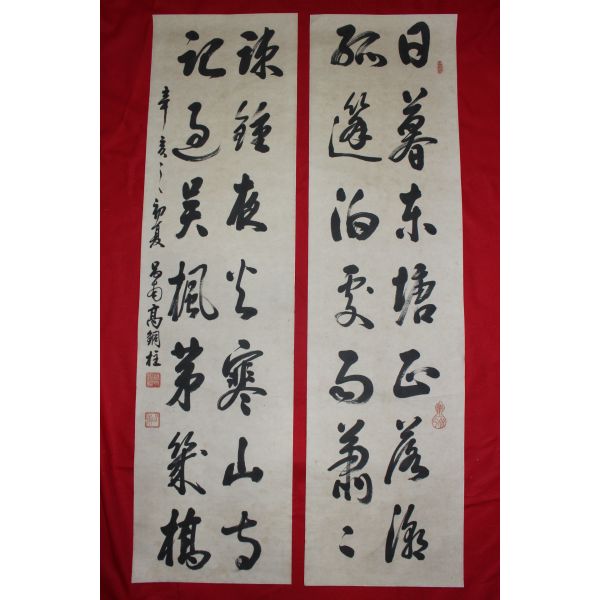 日暮東塘正落潮
孤篷泊處雨蕭〻
疎鍾夜火寒山寺
記過吳楓第幾橋
辛亥之初夏 昌南高銅柱